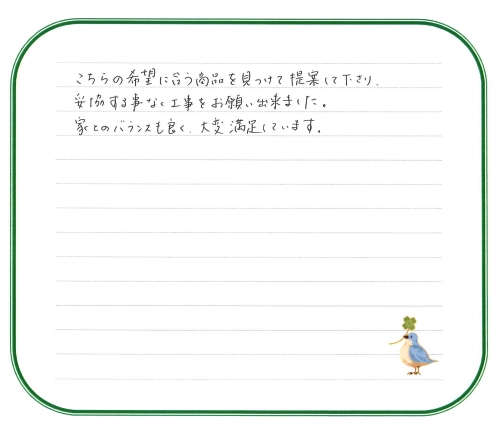 こちらの希望に合う商品を見つけて提案して下さり、
妥協する事なく工事をお願い出来ました。
家とのバランスも良く、大変満足しています。